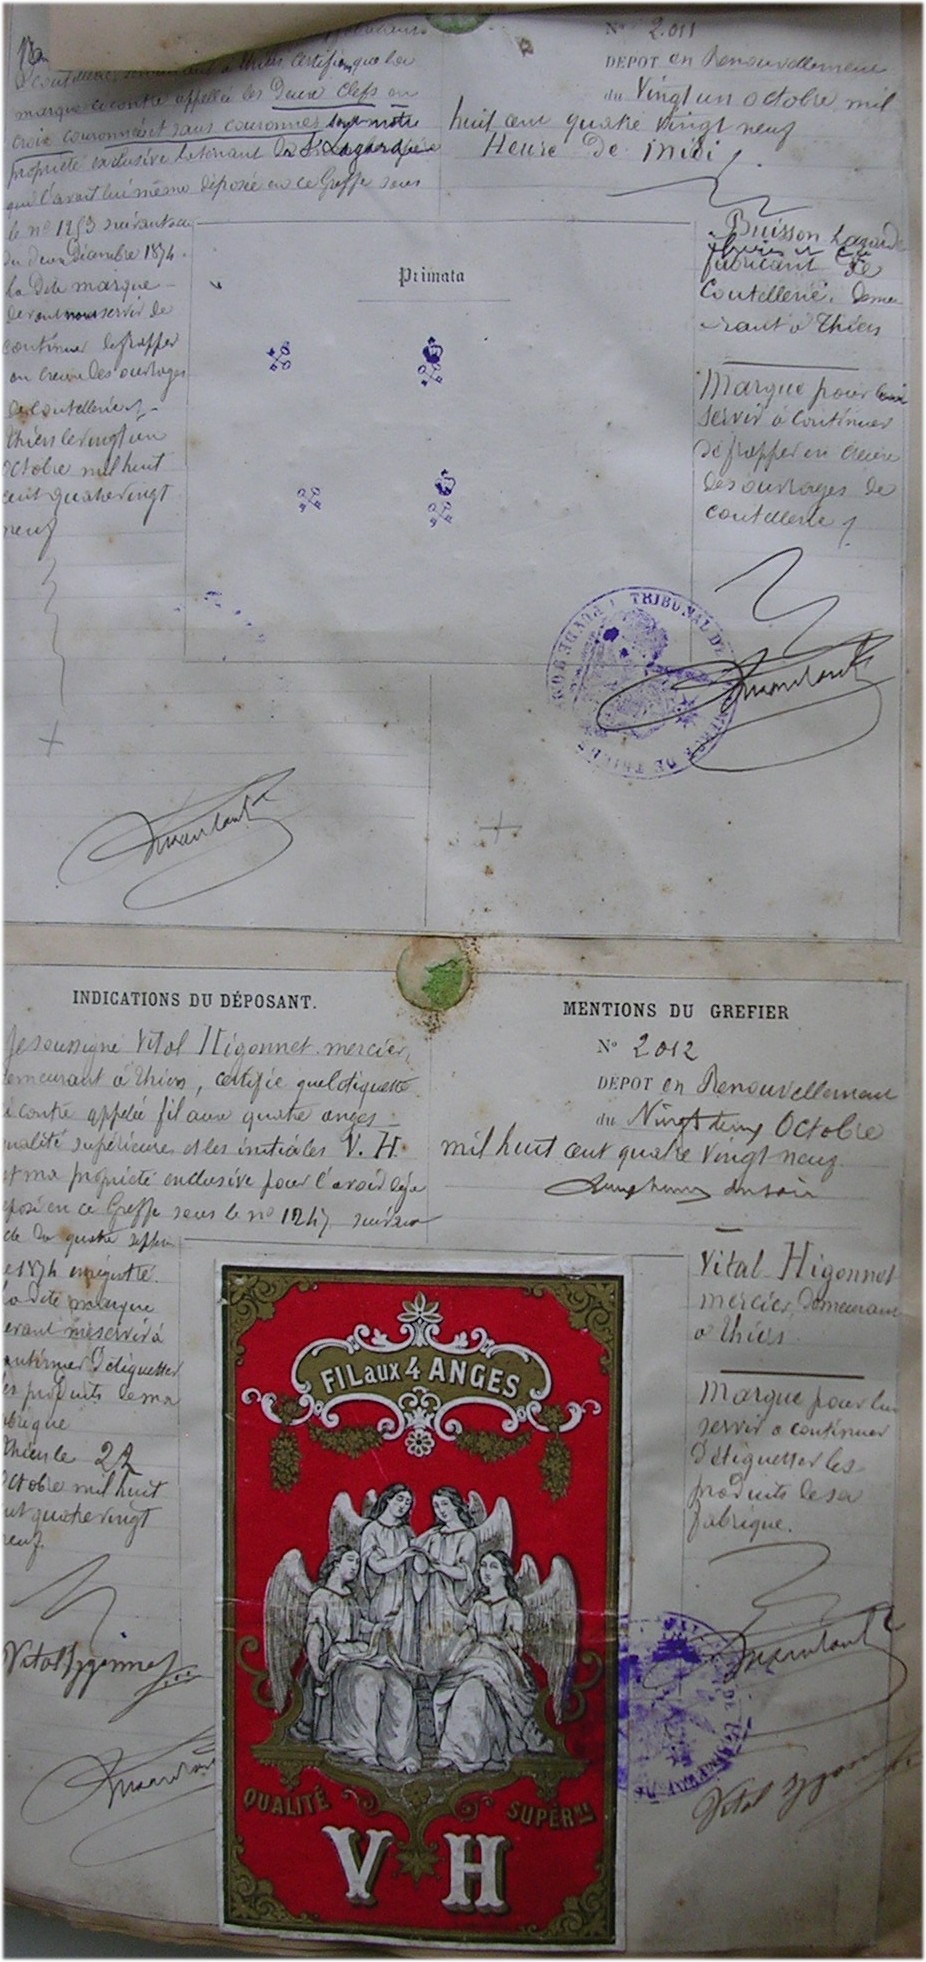 coutellerie, demeurant à Thiers certifions que la
marque ci contre appellée les Deux Clefs en
croix couronnées et sans couronnes soit notre
propriété exclusive la tenant du Sr Lazard
qui l'avait lui même déposée en ce Greffe sous
le no 1253 suivant acte
du deux Décembre 1874.
la Dite marque
devant nous servir de
continuer de frapper
en creux des ouvrages
de coutellerie
Thiers le vingt un
octobre mil huit
cent quatre vingt
neuf
No 2.011
DÉPOT en Renouvellement
du Vingt un octobre mil
huit cent quatre vingt neuf
Heure de midi
Primata
Buisson Lazard
fabricant de
coutellerie. Demeu
rant à Thiers
Marque pour lui
servir à continuer
de frapper en creux
des ouvrages de
coutellerie
TRIBUNAL DE COMMERCE DE THIERS
PUY-DE-DOME
INDICATIONS DU DÉPOSANT.
Je soussigné Vital Higonnet mercier,
demeurant à Thiers, certifie que l'étiquette
ci contre appelée fil aux quatre anges
qualité supérieures et les initiales V. H.
est ma propriété exclusive pour l'avoir déjà
déposé en ce Greffe sous le no 1247 suivant
acte du quatre septem
bre 1874 enregistré.
La dite marque
devant me servir à
continuer d'étiquetter
les produits de ma
fabrique
Thiers le 22
Octobre mil huit
cent quatre vingt
neuf.
Vital Higonnet
MENTIONS DU GREFIER
No 2012
DÉPOT en Renouvellement
du Vingt deux Octobre
mil huit cent quatre vingt neuf
du soir
Vital Higonnet
mercier, demeurant
à Thiers
Marque pour lui
servir à continuer
d'étiquetter les
produits de sa
fabrique.
Vital Higonnet
FIL aux 4 ANGES
QUALITÉ SUPÉRRE
V H